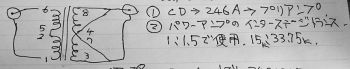 6 8
5 4
2 7
1 3
① CD→246A→プリアンプ
② パワーアンプのインターステージトランス
1:1.5で使用. 15k:33.75k